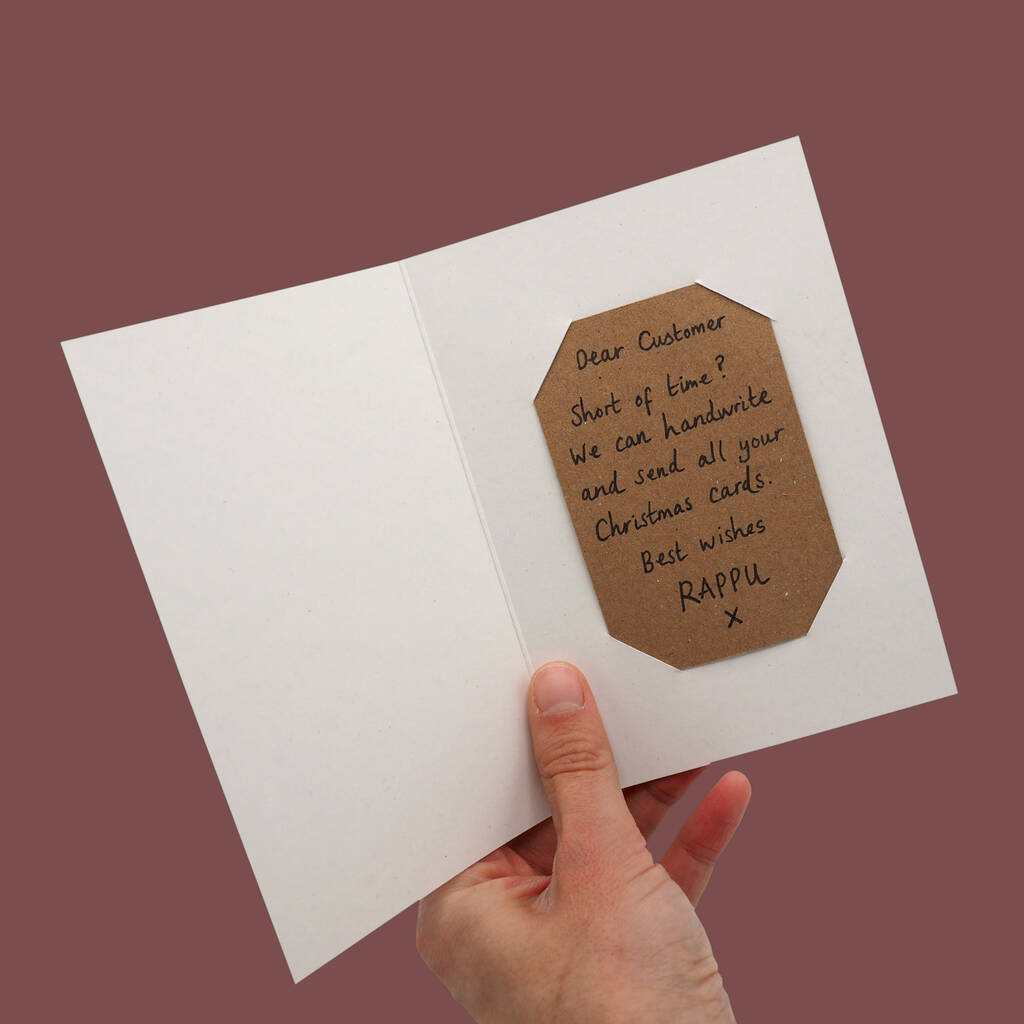 Dear Customer
Short of time?
We can handwrite
and send all your
Christmas cards.
Best wishes
RAPPU
X